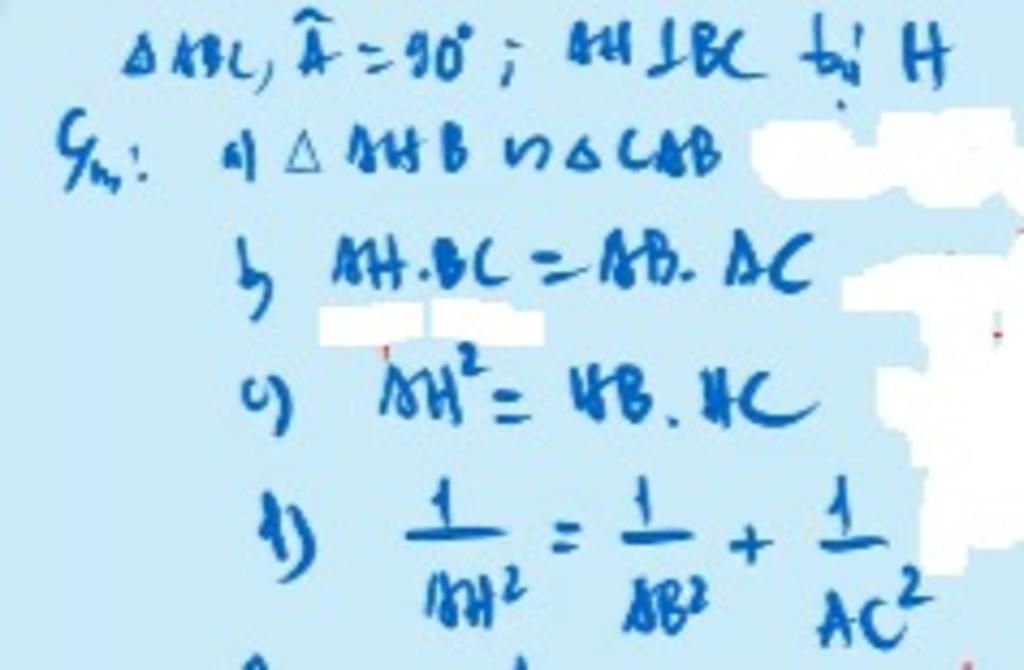 Δ ABC, Â = 90°; AH ⊥ BC tại H
Cm: a) Δ AHB ∽ Δ CAB
b) AH.BC = AB. AC
c) AH² = HB. HC
d) 1/AH² = 1/AB² + 1/AC²